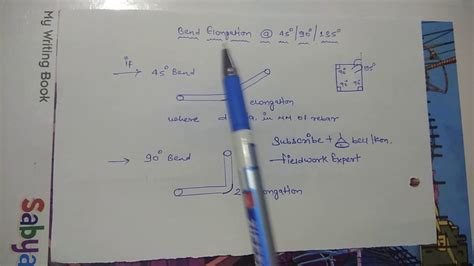 My Writing Book
Sabya
Bend Elongation @ 45°/90°/135°
if
→ 45° Bend
90° 135°
90° 90°
elongation
where d in MM of rebar
Subscribe + bell Icon.
→ 90° Bend
- fieldwork Expert
2 elongation